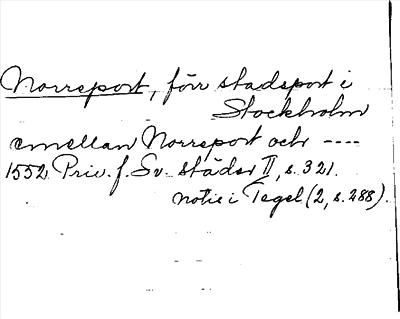 Norreport, förr stadsport i
Stockholm
emellan Norreport och ----
1552 Priv. f. Sv. städer II, s. 321.
notis i Tegel (2, s. 288).